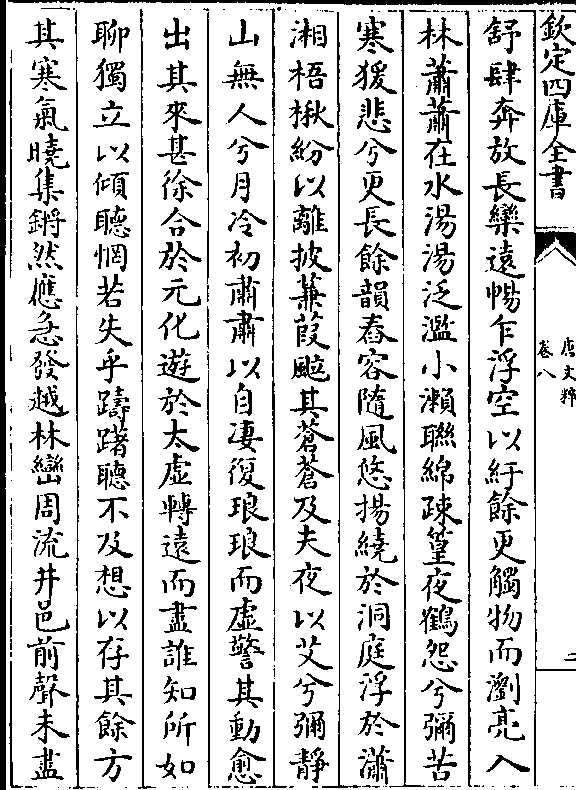 欽定四庫全書
唐文粹
卷八
二
舒肆奔放長欒遠暢乍浮空以紆餘更觸物而瀏亮入
林蕭蕭在水湯湯泛濫小瀨聯綿疎篁夜鶴怨兮彌苦
寒猨悲兮更長餘韻舂容隨風悠揚繞於洞庭浮於瀟
湘梧楸紛以離披蒹葭颭其蒼蒼及夫夜以艾兮彌靜
山無人兮月冷初肅肅以自凄復琅琅而虛警其動愈
出其來甚徐合於元化遊於太虛轉遠而盡誰知所如
聊獨立以傾聽惘若失乎躊躇聽不及想以存其餘方
其寒氣曉集鏘然應急發越林巒周流井邑前聲未盡